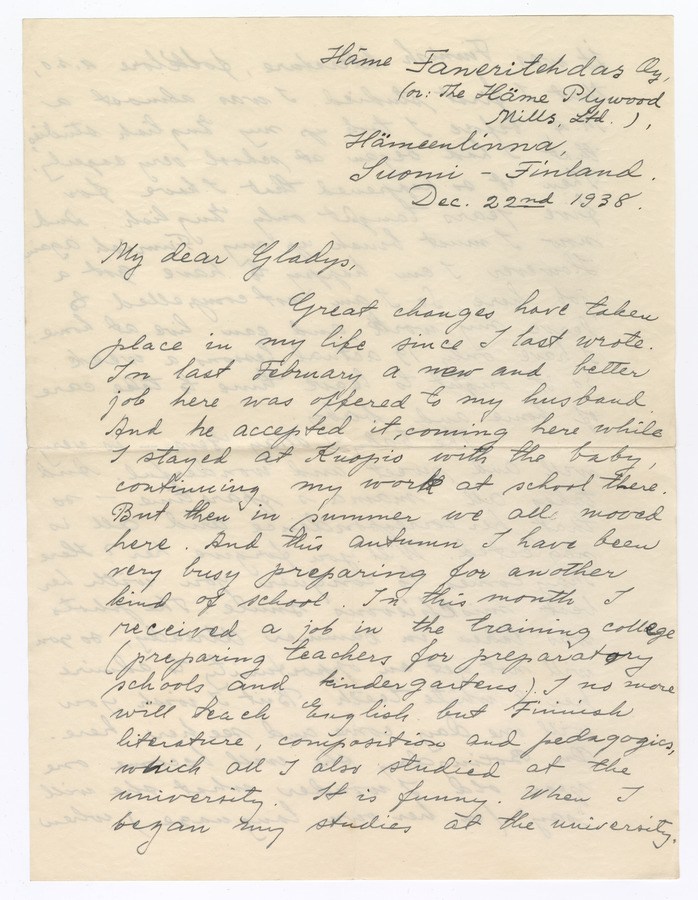 Häme Faneritehdas Oy,
(or: The Häme Plywood
Mills, Ltd.),
Hämeenlinna,
Suomi - Finland.
Dec. 22nd 1938.
My dear Gladys,
Great changes have taken
place in my life since I last wrote.
In last February a new and better
job here was offered to my husband.
And he accepted it, coming here while
I stayed at Kuopio with the baby,
continuing my work at school there.
But then in summer we all moved
here. And this autumn I have been
very busy preparing for another
kind of school. In this month I
received a job in the training college
(preparing teachers for preparatory
schools and kindergartens). I no more
will teach English but Finnish
literature, composition and pedagogics,
which all I also studied at the
university. It is funny. When I
began my studies at the university.